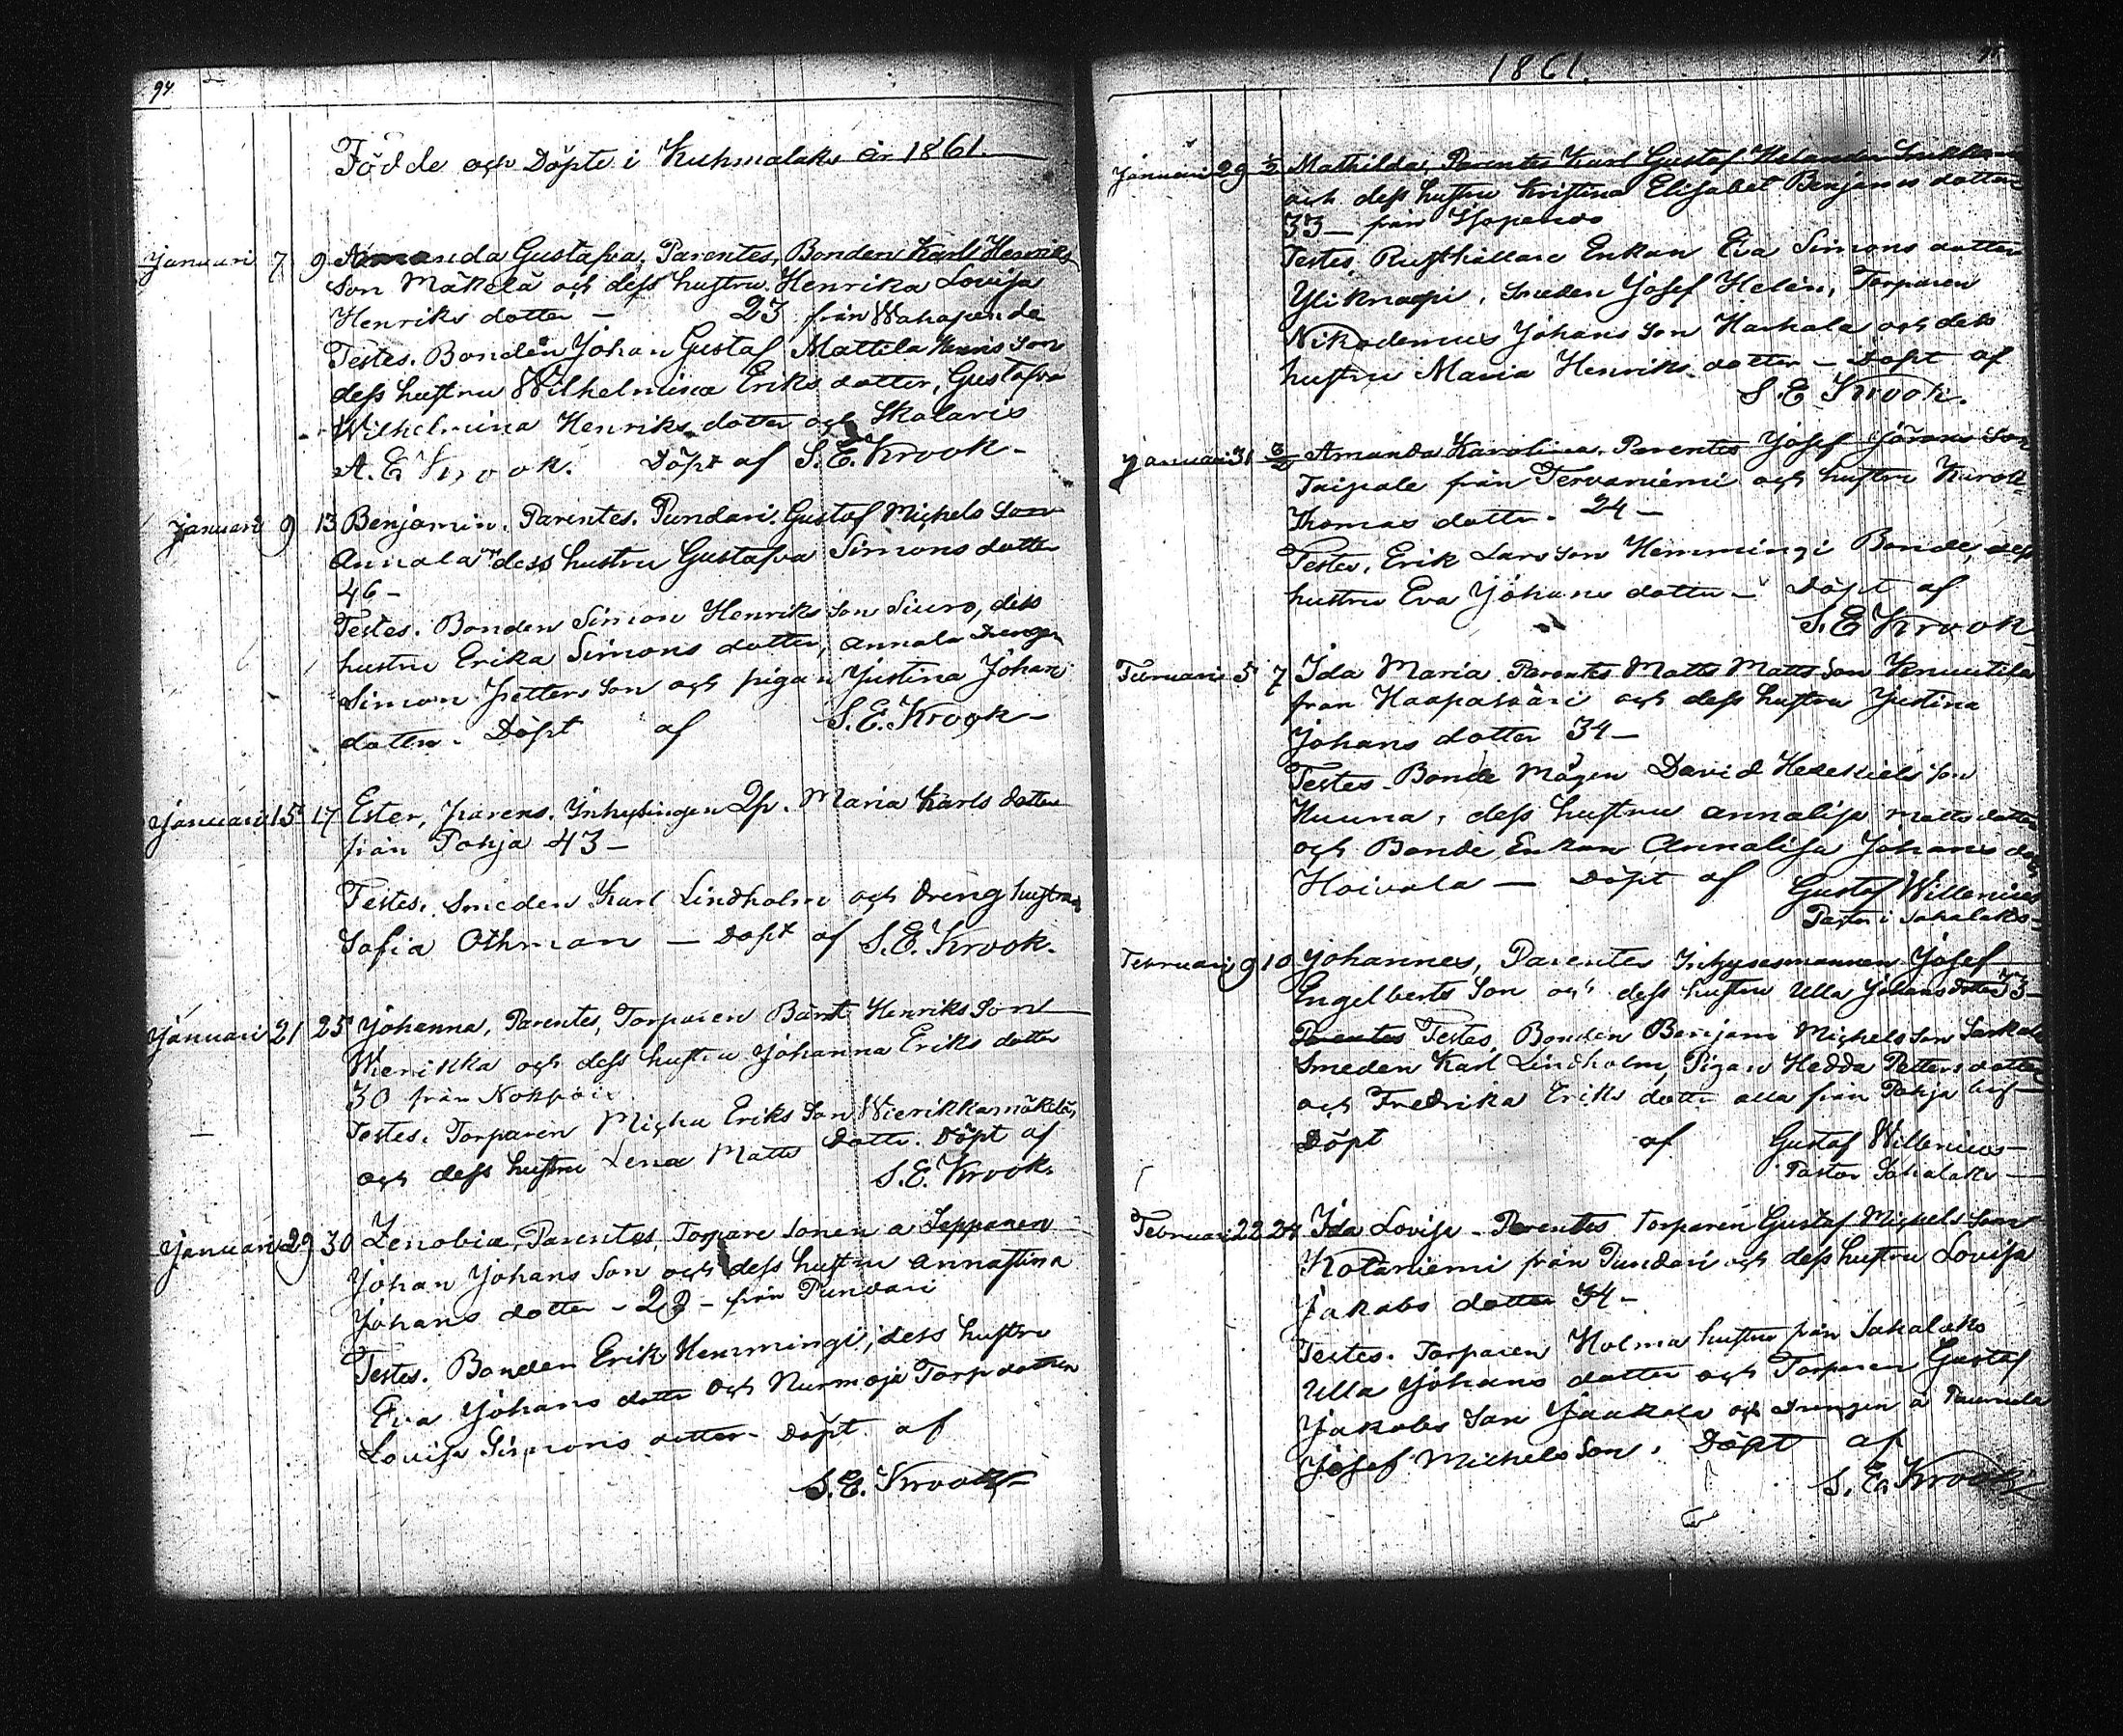 94
Födde och Döpte i Kuhmalaks år 1861.
Januari 7 9 Amanda Gustafva, Parentes, Bonden Karl Henriks
son Mäkelä och dess hustru Henrika Lovisa
Henriks dotter – 23 från Wahapenda
Testes. Bonden Johan Gustaf Mattila Henris son
dess hustru Wilhelmina Eriks dotter, Gustafva
Wilhelmina Henriks dotter och Skolaris
A. E. Krook. Döpt af S. E. Krook –
Januari 9 13 Benjamin. Parentes. Pundari. Gustaf Michels son
Annala dess hustru Gustafva Simons dotter
46 –
Testes. Bonden Simon Henriks son Siuro, dess
hustru Erika Simons dotter, Annala Drengen
Simon Petters son och pigan Justina Johans
dotter. Döpt af S. E. Krook –
Januari 15 17 Ester, parens. Inhysingen Qp. Maria Karls dotter
från Pohja 43 –
Testes. Smeden Karl Lindholm och Dreng hustrun
Sofia Othman – Döpt af S. E. Krook.
Januari 21 25 Johanna, Parentes, Torparen Bärt Henriks Son
Wierikka och dess hustru Johanna Eriks dotter
30 från
Testes. Torparen Micha Eriks Son Wierikkamäkelä,
och dess hustru Lena Matts Dotter. Döpt af
S. E. Krook.
Januari 29 30 Zenobia, Parentes, Torpare sonen a Seppänen
Johan Johans Son och dess hustru Annastina
Johans dotter – 23 – från Pundari
Testes. Bonden Erik Hemmingi, dess hustru
Eva Johans dotter och Nurmoja Torp dottren
Lovisa Simons dotter – Döpt af
S. E. Krook
1861.
Januari 29 1/2 Mathilda, Parentes Karl Gustaf Helander
och dess hustru Kristina Elisabet Benjams dotter
33 – från
Testes, Rusthållare Enkan Eva Simons dotter
Yliknaapi, Smeden Josef Helin, Torparen
Nikodemus Johans Son Harhala och dess
hustru Maria Henriks dotter – Döpt af
S. E Krook.
Januari 31 3/2 Amanda Karolina. Parentes Josef Görans Son
Taipale från Tervaniemi och hustru Karol.
Thomas dotter. 24 –
Testes, Erik Larsson Hemmingi Bonde, dess
hustru Eva Johans dotter – Döpt af
S. E Krook
Februari 5 7 Ida Maria, Parentes Matts Matts Son Knuutila
från Haapasaari och dess hustru Justina
Johans dotter 34 –
Testes – Bonde Mågen David Hedekiels Son
Kuuna, dess hustru Annalisa Matts dotter
och Bonde Enkan Annalisa Johans dott
Hoivala – Döpt af Gustaf Willenius
Pastor i Sahalaks –
Februari 9 10 Johannes, Parentes Inhysesmannen Josef
Engelberts Son och dess hustru Ulla Johans dotter 33 –
Parentes Testes, Bonden Benjam Michels Son
Smeden Karl Lindholm, Pigan Hedda Petters dotter
och Fredrika Eriks dotter alla från Pohja by –
Döpt af Gustaf Willenius –
Pastor Sahalaks –
Februari 22 24 Ida Lovisa – Parentes Torparen Gustaf Michels Son
Kotaniemi från Pundari och dess hustru Lovisa
Jakobs dotter 34 –
Testes. Torparen Holma hustru från Sahalaks
Ulla Johans dotter och Torparen Gustaf
Jakobs Son Jaakola och Drengen å Paunula
Josef Michels Son. Döpt af
S. E. Krook